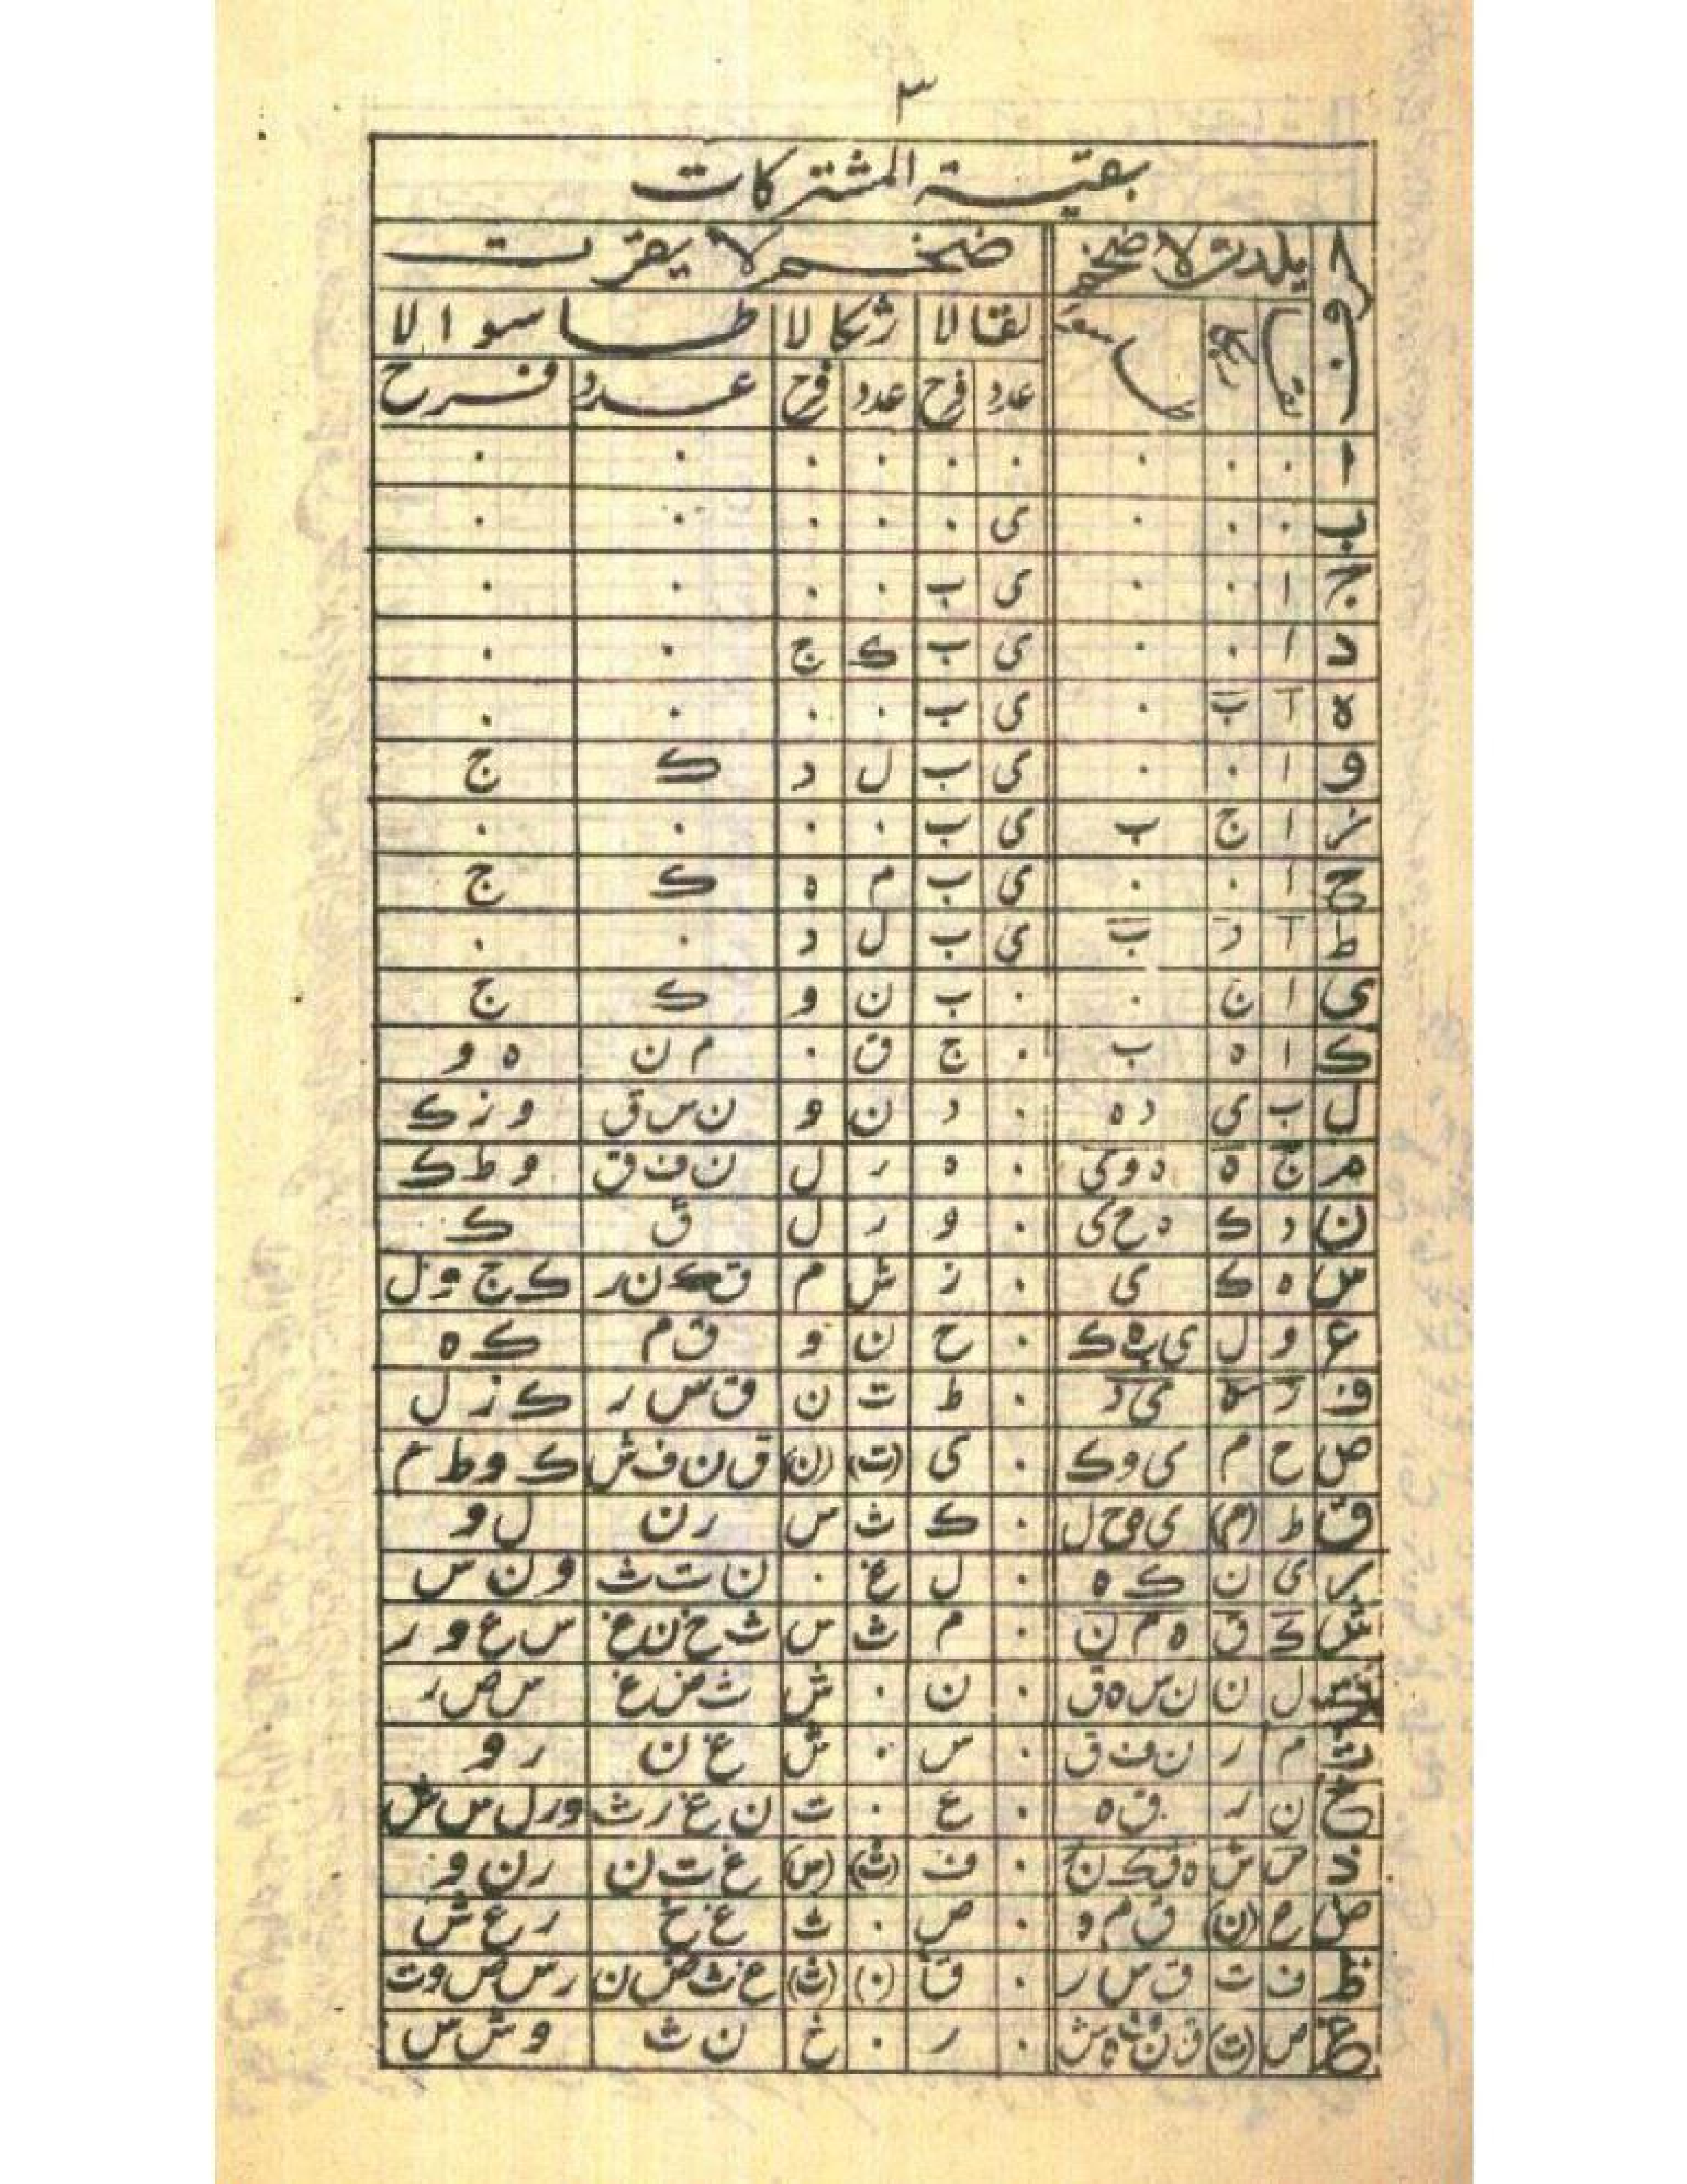 ٣
بقية المشتركات
يلدت لا ضخم ضخم لا يقرت
لقالا ژكالا طاسوالا
عدد فرح عدد فرح عدد فرح
ا · · · · · · · · ·
ب · · · ى · · · · ·
ج ا · · ى ب · · · ·
د ا · · ى ب ك ج · ·
ه ا ب · ى ب · · · ·
و ا · · ى ب ل د ك ج
ز ا ج ب ى ب · · · ·
ح ا · · ى ب م ه ك ج
ط ا د ب ى ب ل د · ·
ى ا ج · · ب ن و ك ج
ك ا ه ب · ج ق · م ن ه و
ل ب ى د ه · د ن و ن س ق و ز ك
م ج ه ه و ى · ه ر ل ن ف ق و ط ك
ن د ك ه ح ى · و ر ل ق ك
س ه ك ى · ز ش م ق ك ن ر ك ج و ل
ع و ل ى ه ك · ح ن و ق م ك ه
ف ز ى د · ط ت ن ق س ر ك ز ل
ص ح م ى و ك · ى (ت) (ن) ق ن ف ش ك و ط م
ق ط (م) ى و ح ل · ك ث س ر ن ل و
ر ى ن ك ه · ل غ · ن ت ث و ن س
ش ك ق ه م ن · م ث س ث خ ن غ س ع و ر
ل ن ن س ه ق · ن · ش ث ض غ س ص ر
ت م ر ن ف ق · س · ش غ ن ر و
خ ن ر ق ه · ع · ت ن غ ر ث و ر ل س ش
ذ س ش ه ق ك ن · ف (ث) (س) غ ت ن ر ن و
ض ع (ن) ق م و · ص · ث غ خ ر ع ش
ظ ف ت ق س ر · ق (·) (ث) غ ث ض ن ر س ص و ت
غ ص (ت) ق ن ف ه ش · ر · خ ن ث و ش س